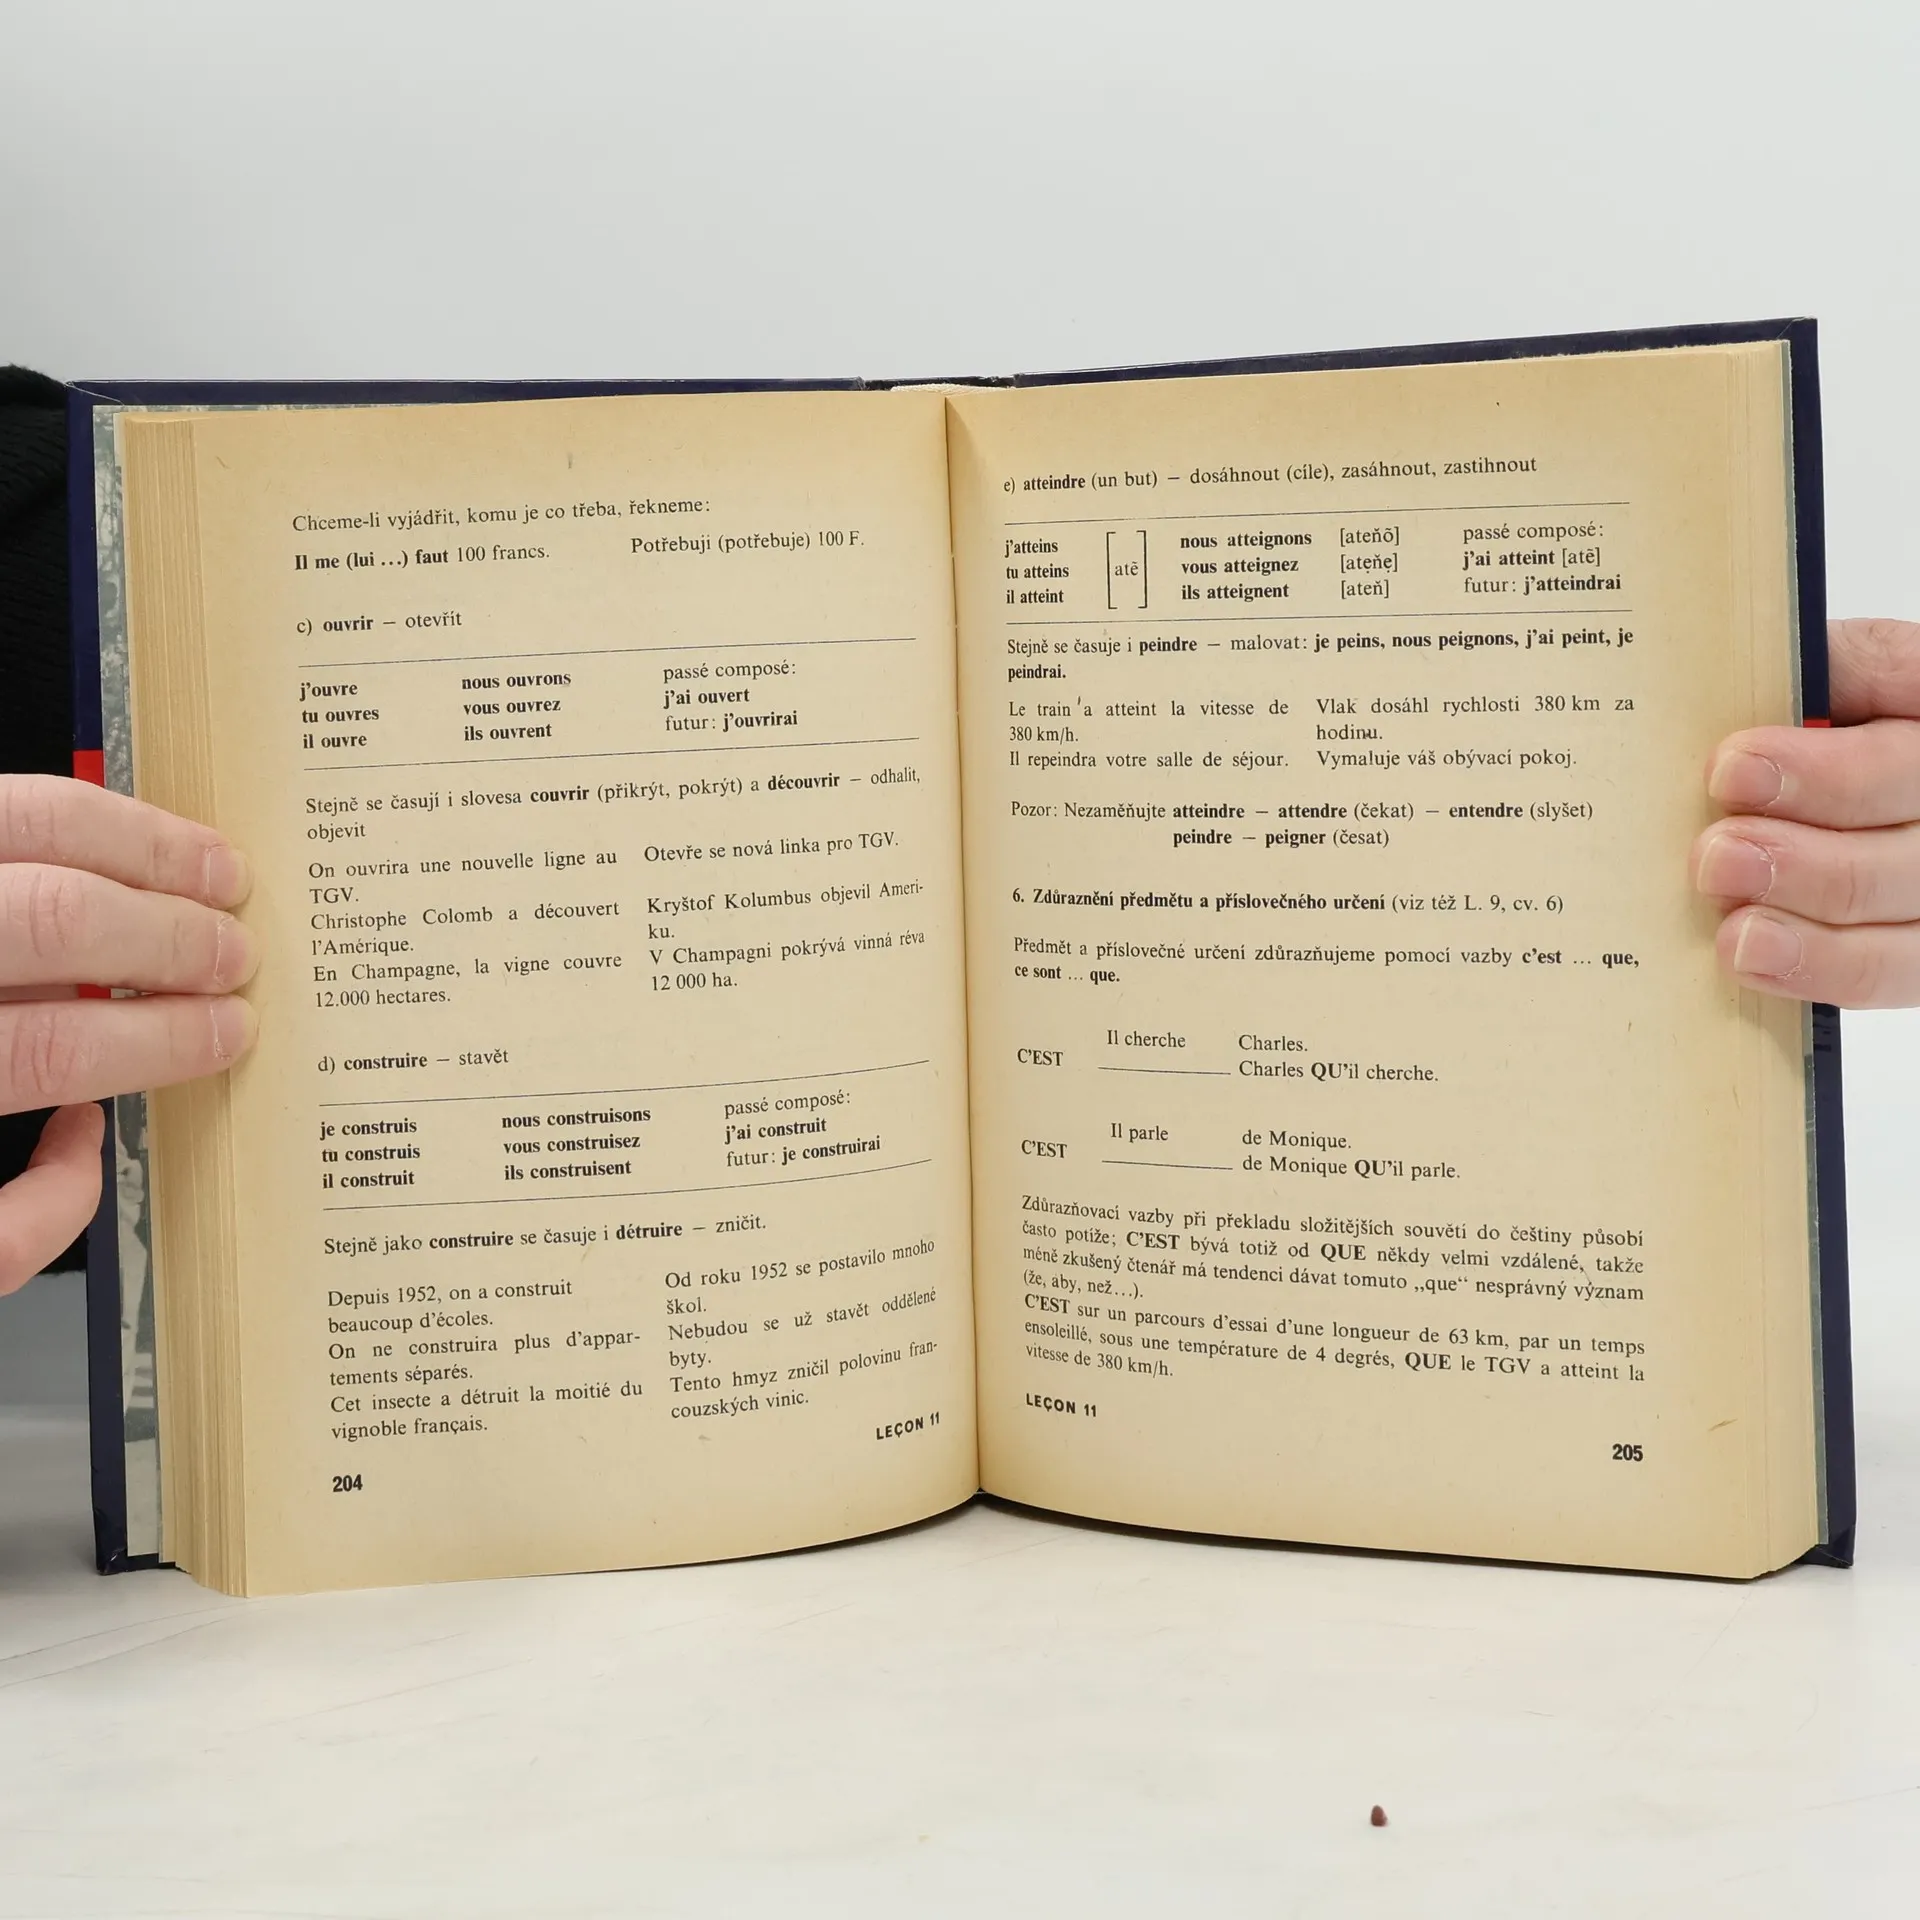 Chceme-li vyjádřit, komu je co třeba, řekneme:
Il me (lui ...) faut 100 francs. Potřebuji (potřebuje) 100 F.
c) ouvrir – otevřít
j'ouvre nous ouvrons passé composé:
tu ouvres vous ouvrez j'ai ouvert
il ouvre ils ouvrent futur: j'ouvrirai
Stejně se časují i slovesa couvrir (přikrýt, pokrýt) a découvrir – odhalit,
objevit
On ouvrira une nouvelle ligne au Otevře se nová linka pro TGV.
TGV.
Christophe Colomb a découvert Kryštof Kolumbus objevil Ameri-
l'Amérique. ku.
En Champagne, la vigne couvre V Champagni pokrývá vinná réva
12.000 hectares. 12 000 ha.
d) construire – stavět
je construis nous construisons passé composé:
tu construis vous construisez j'ai construit
il construit ils construisent futur: je construirai
Stejně jako construire se časuje i détruire – zničit.
Depuis 1952, on a construit Od roku 1952 se postavilo mnoho
beaucoup d'écoles. škol.
On ne construira plus d'appar- Nebudou se už stavět oddělené
tements séparés. byty.
Cet insecte a détruit la moitié du Tento hmyz zničil polovinu fran-
vignoble français. couzských vinic.
LEÇON 11
204
e) atteindre (un but) – dosáhnout (cíle), zasáhnout, zastihnout
j'atteins nous atteignons [ateňõ] passé composé:
tu atteins [atẽ] vous atteignez [ateňẹ] j'ai atteint [atẽ]
il atteint ils atteignent [ateň] futur: j'atteindrai
Stejně se časuje i peindre – malovat: je peins, nous peignons, j'ai peint, je
peindrai.
Le train 'a atteint la vitesse de Vlak dosáhl rychlosti 380 km za
380 km/h. hodinu.
Il repeindra votre salle de séjour. Vymaluje váš obývací pokoj.
Pozor: Nezaměňujte atteindre – attendre (čekat) – entendre (slyšet)
peindre – peigner (česat)
6. Zdůraznění předmětu a příslovečného určení (viz též L. 9, cv. 6)
Předmět a příslovečné určení zdůrazňujeme pomocí vazby c'est ... que,
ce sont ... que.
Il cherche Charles.
C'EST Charles QU'il cherche.
Il parle de Monique.
C'EST de Monique QU'il parle.
Zdůrazňovací vazby při překladu složitějších souvětí do češtiny působí
často potíže; C'EST bývá totiž od QUE někdy velmi vzdálené, takže
méně zkušený čtenář má tendenci dávat tomuto „que“ nesprávný význam
(že, aby, než...).
C'EST sur un parcours d'essai d'une longueur de 63 km, par un temps
ensoleillé, sous une température de 4 degrés, QUE le TGV a atteint la
vitesse de 380 km/h.
LEÇON 11
205